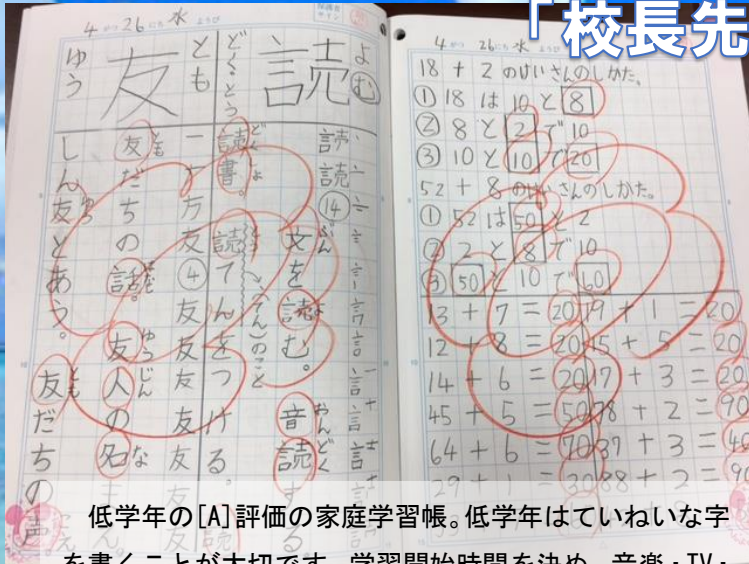 「校長先
4がつ 26にち 水ようび
読
よむ
どく・とう
読 読 ⑭
文を読む。
音読する
読書。
読てんをつける。
、(てん)のこと
友
とも
ゆう
一 ナ 方 友 ④ 友 友 友 友 友
友だちの話。
友人の名
しん友とあう。
友だちの声
4がつ 26にち 水ようび
18 + 2 のけいさんのしかた。
① 18 は 10 と 8
② 8 と 2 で 10
③ 10 と 10 で 20
52 + 8 のけいさんのしかた。
① 52 は 50 と 2
② 2 と 8 で 10
③ 50 と 10 で 60
13 + 7 = 20 19 + 1 = 20
12 + 8 = 20 15 + 5 = 20
14 + 6 = 20 17 + 3 = 20
45 + 5 = 50 88 + 2 = 90
64 + 6 = 70 37 + 3 = 40
29 + 1 = 30 88 + 2 = 90
低学年の[A]評価の家庭学習帳。低学年はていねいな字
を書くことが大切です。学習開始時間を決め、音楽・TV・